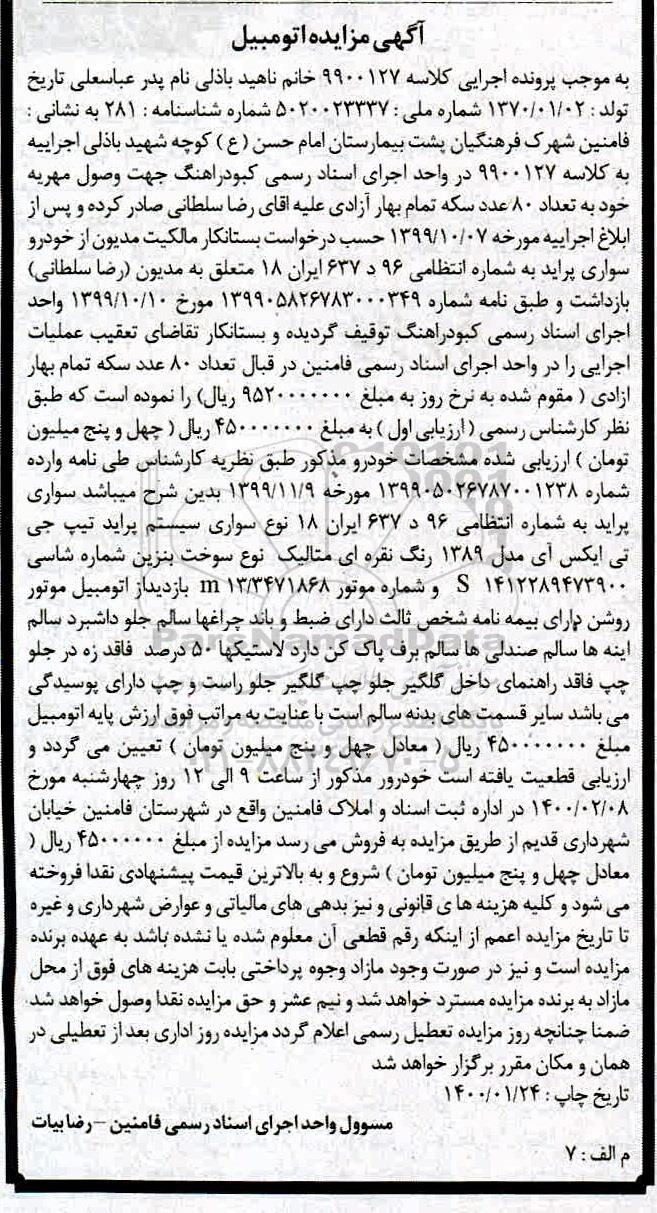 آگهی مزایده اتومبیل
به موجب پرونده اجرایی کلاسه ۹۹۰۰۱۲۷ خانم ناهید باذلی نام پدر عباسعلی تاریخ
تولد : ۱۳۷۰/۰۱/۰۲ شماره ملی : ۵۰۲۰۰۲۳۳۳۷ شماره شناسنامه : ۲۸۱ به نشانی :
فامنین شهرک فرهنگیان پشت بیمارستان امام حسن (ع) کوچه شهید باذلی اجراییه
به کلاسه ۹۹۰۰۱۲۷ در واحد اجرای اسناد رسمی کبودراهنگ جهت وصول مهریه
خود به تعداد ۸۰ عدد سکه تمام بهار آزادی علیه اقای رضا سلطانی صادر کرده و پس از
ابلاغ اجراییه مورخه ۱۳۹۹/۱۰/۰۷ حسب درخواست بستانکار مالکیت مدیون از خودرو
سواری پراید به شماره انتظامی ۹۶ د ۶۳۷ ایران ۱۸ متعلق به مدیون (رضا سلطانی)
بازداشت و طبق نامه شماره ۱۳۹۹۰۵۸۲۶۷۸۳۰۰۰۳۴۹ مورخ ۱۳۹۹/۱۰/۱۰ واحد
اجرای اسناد رسمی کبودراهنگ توقیف گردیده و بستانکار تقاضای تعقیب عملیات
اجرایی را در واحد اجرای اسناد رسمی فامنین در قبال تعداد ۸۰ عدد سکه تمام بهار
ازادی ( مقوم شده به نرخ روز به مبلغ ۹۵۲۰۰۰۰۰۰۰ ریال) را نموده است که طبق
نظر کارشناس رسمی ( ارزیابی اول ) به مبلغ ۴۵۰۰۰۰۰۰۰ ریال ( چهل و پنج میلیون
تومان ) ارزیابی شده مشخصات خودرو مذکور طبق نظریه کارشناس طی نامه وارده
شماره ۱۳۹۹۰۵۰۲۶۷۸۷۰۰۱۲۳۸ مورخه ۱۳۹۹/۱۱/۹ بدین شرح میباشد سواری
پراید به شماره انتظامی ۹۶ د ۶۳۷ ایران ۱۸ نوع سواری سیستم پراید تیپ جی
تی ایکس آی مدل ۱۳۸۹ رنگ نقره ای متالیک نوع سوخت بنزین شماره شاسی
S ۱۴۱۲۲۸۹۴۷۳۹۰۰ و شماره موتور m ۱۳/۳۴۷۱۸۶۸ بازدیداز اتومبیل موتور
روشن دارای بیمه نامه شخص ثالث دارای ضبط و باند چراغها سالم جلو داشبرد سالم
اینه ها سالم صندلی ها سالم برف پاک کن دارد لاستیکها ۵۰ درصد فاقد زه در جلو
چپ فاقد راهنمای داخل گلگیر جلو چپ گلگیر جلو راست و چپ دارای پوسیدگی
می باشد سایر قسمت های بدنه سالم است با عنایت به مراتب فوق ارزش پایه اتومبیل
مبلغ ۴۵۰۰۰۰۰۰۰ ریال ( معادل چهل و پنج میلیون تومان ) تعیین می گردد و
ارزیابی قطعیت یافته است خودرور مذکور از ساعت ۹ الی ۱۲ روز چهارشنبه مورخ
۱۴۰۰/۰۲/۰۸ در اداره ثبت اسناد و املاک فامنین واقع در شهرستان فامنین خیابان
شهرداری قدیم از طریق مزایده به فروش می رسد مزایده از مبلغ ۴۵۰۰۰۰۰۰ ریال (
معادل چهل و پنج میلیون تومان ) شروع و به بالاترین قیمت پیشنهادی نقدا فروخته
می شود و کلیه هزینه ها ی قانونی و نیز بدهی های مالیاتی و عوارض شهرداری و غیره
تا تاریخ مزایده اعمم از اینکه رقم قطعی آن معلوم شده یا نشده باشد به عهده برنده
مزایده است و نیز در صورت وجود مازاد وجوه پرداختی بابت هزینه های فوق از محل
مازاد به برنده مزایده مسترد خواهد شد و نیم عشر و حق مزایده نقدا وصول خواهد شد
ضمنا چنانچه روز مزایده تعطیل رسمی اعلام گردد مزایده روز اداری بعد از تعطیلی در
همان و مکان مقرر برگزار خواهد شد
تاریخ چاپ : ۱۴۰۰/۰۱/۲۴
مسوول واحد اجرای اسناد رسمی فامنین – رضا بیات
م الف : ۷
ParsNamadData